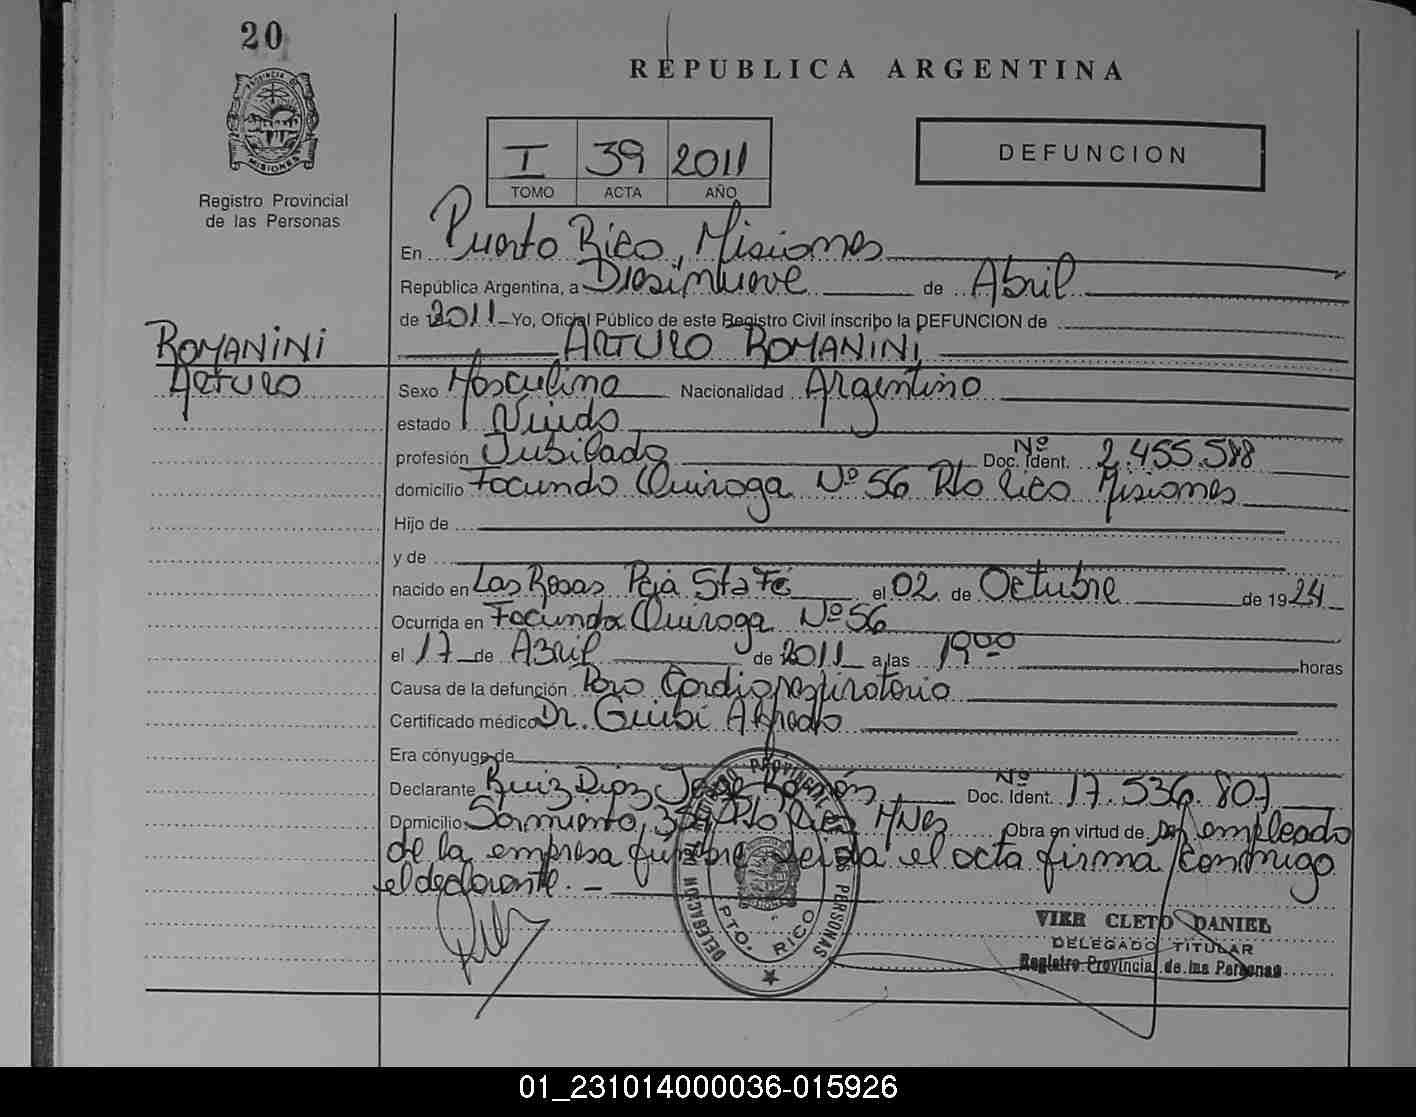 20
PROVINCIA DE
MISIONES
Registro Provincial
de las Personas
REPUBLICA ARGENTINA
I 39 2011
TOMO ACTA AÑO
DEFUNCION
En Puerto Rico, Misiones
Republica Argentina, a Diesinueve de Abril
de 2011 Yo, Oficial Público de este Registro Civil inscribo la DEFUNCION de
ROMANINI
ARTURO ROMANINI
Arturo
Sexo Masculino Nacionalidad Argentino
estado Viudo
profesión Jubilado Nº Doc. Ident. 2.455.588
domicilio Facundo Quiroga Nº 56 Pto Rico Misiones
Hijo de
y de
nacido en Las Rosas Pcia Sta Fé el 02 de Octubre de 1924
Ocurrida en Facundo Quiroga Nº 56
el 17 de Abril de 2011 a las 19 00 horas
Causa de la defunción Paro Cardiorespiratorio
Certificado médico Dr. Giubi Alfredo
Era cónyuge de
Declarante Ruiz Diaz Jose Ramón Nº Doc. Ident. 17.536.807
Domicilio Sarmiento, Pto Rico Mnes Obra en virtud de ser empleado
de la empresa fúnebre leida el acta firma conmigo
el declarante. –
DELEGACION DEL REGISTRO PROVINCIAL DE LAS PERSONAS
PTO. RICO
VIER CLETO DANIEL
DELEGADO TITULAR
Registro Provincial de las Personas
01_231014000036-015926